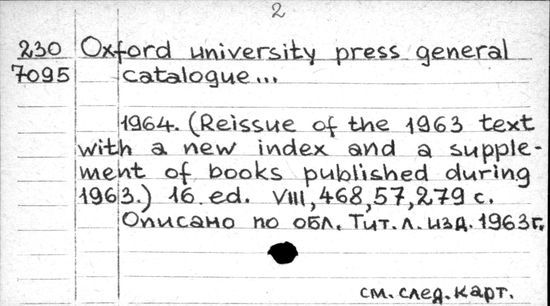 2
230 Oxford university press general
7095 catalogue...
1964. (Reissue of the 1963 text
with a new index and a supple-
ment of books published during
1963.) 16 ed. VIII, 468, 57, 279 с.
Описано по обл. Тит. л. изд. 1963г.
см. след. карт.